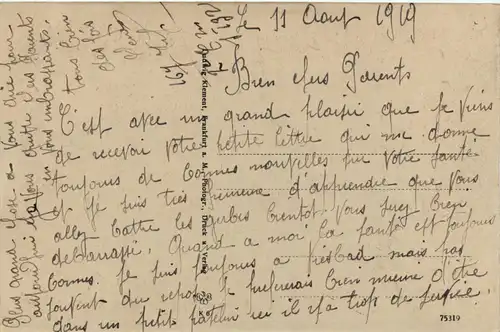 Le 11 Aout 1919
Bien chers Parents
C'est avec un grand plaisir que je viens
de recevoir votre petite lettre qui me donne
toujours de bonnes nouvelles sur votre santé
et je suis très heureuse d'apprendre que vous
allez battre les gerbis bientot. Vous serez bien
debarrassé. Quand a moi la santé est toujours
bonnes. Je suis toujours a Viesbad mais pas
souvent du repos. Je prefererais bien mieux d'être
dans un petit patelin ici il y a trop de service.
Plus grand chose a vous dire pour
aujourd'hui Chers Parents
en vous embrassant
tous bien
des fois
Ludwig Klement, Frankfurt a. M. Photogr. Druck u. Verlag
K 6
75319